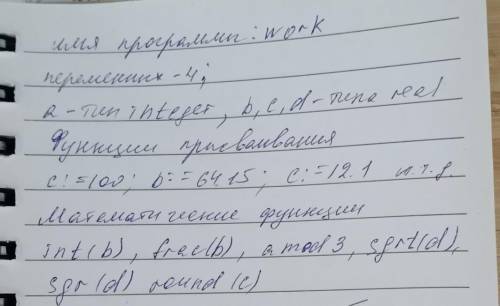 имя программы: work
переменных - 4;
a - тип integer, b, c, d - типа real
Функции присваивания
c:=100; b:=64.15; c:=12.1 и.т.д.
Математические функции
int(b), frac(b), a mod 3, sgrt(d),
sgr(d) round(c)